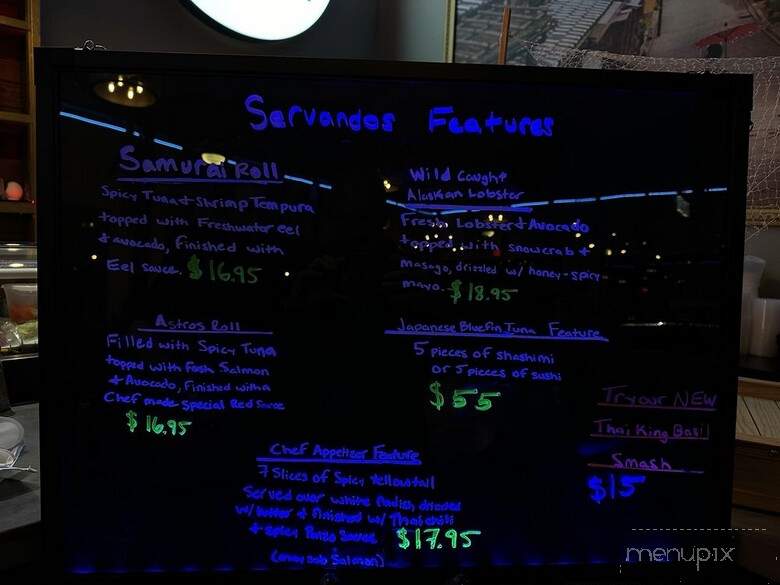 Servandos Features
Samurai Roll
Spicy Tuna + Shrimp Tempura
topped with Freshwater eel
+ avocado, finished with
Eel sauce. $16.95
Wild Caught
Alaskian Lobster
Fresh Lobster + Avocado
topped with snowcrab +
masago, drizzled w/ honey-spicy
mayo. $18.95
Astros Roll
Filled with Spicy Tuna
topped with Fresh Salmon
+ Avocado, Finished with a
Chef made special Red Sauce
$16.95
Japanese Bluefin Tuna Feature
5 pieces of shashimi
or 5 pieces of sushi
$55
Try our NEW
Thai King Basil
Smash
$15
Chef Appetizer Feature
7 Slices of Spicy Yellowtail
Served over white Radish drizzled
w/ butter + finished w/ Thai chili
+ spicy Ponzu Sauce. $17.95
(may sub Salmon)
menupix